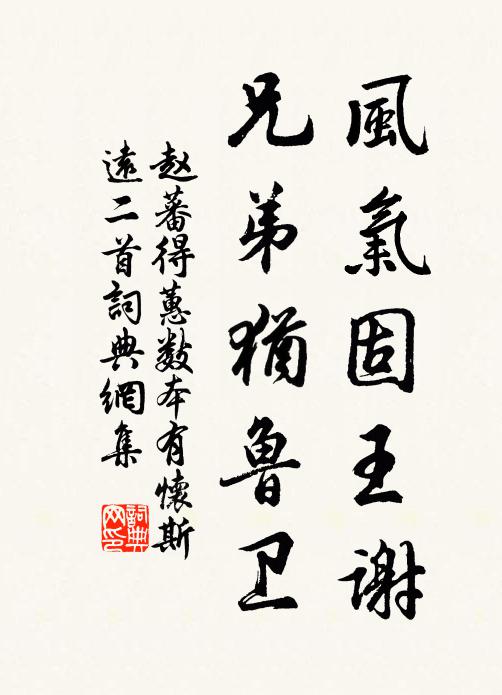 風氣固王谢
兄弟猶魯卫
赵蕃得蕙数本有懷斯
遠二首詞典網集
詞典网印